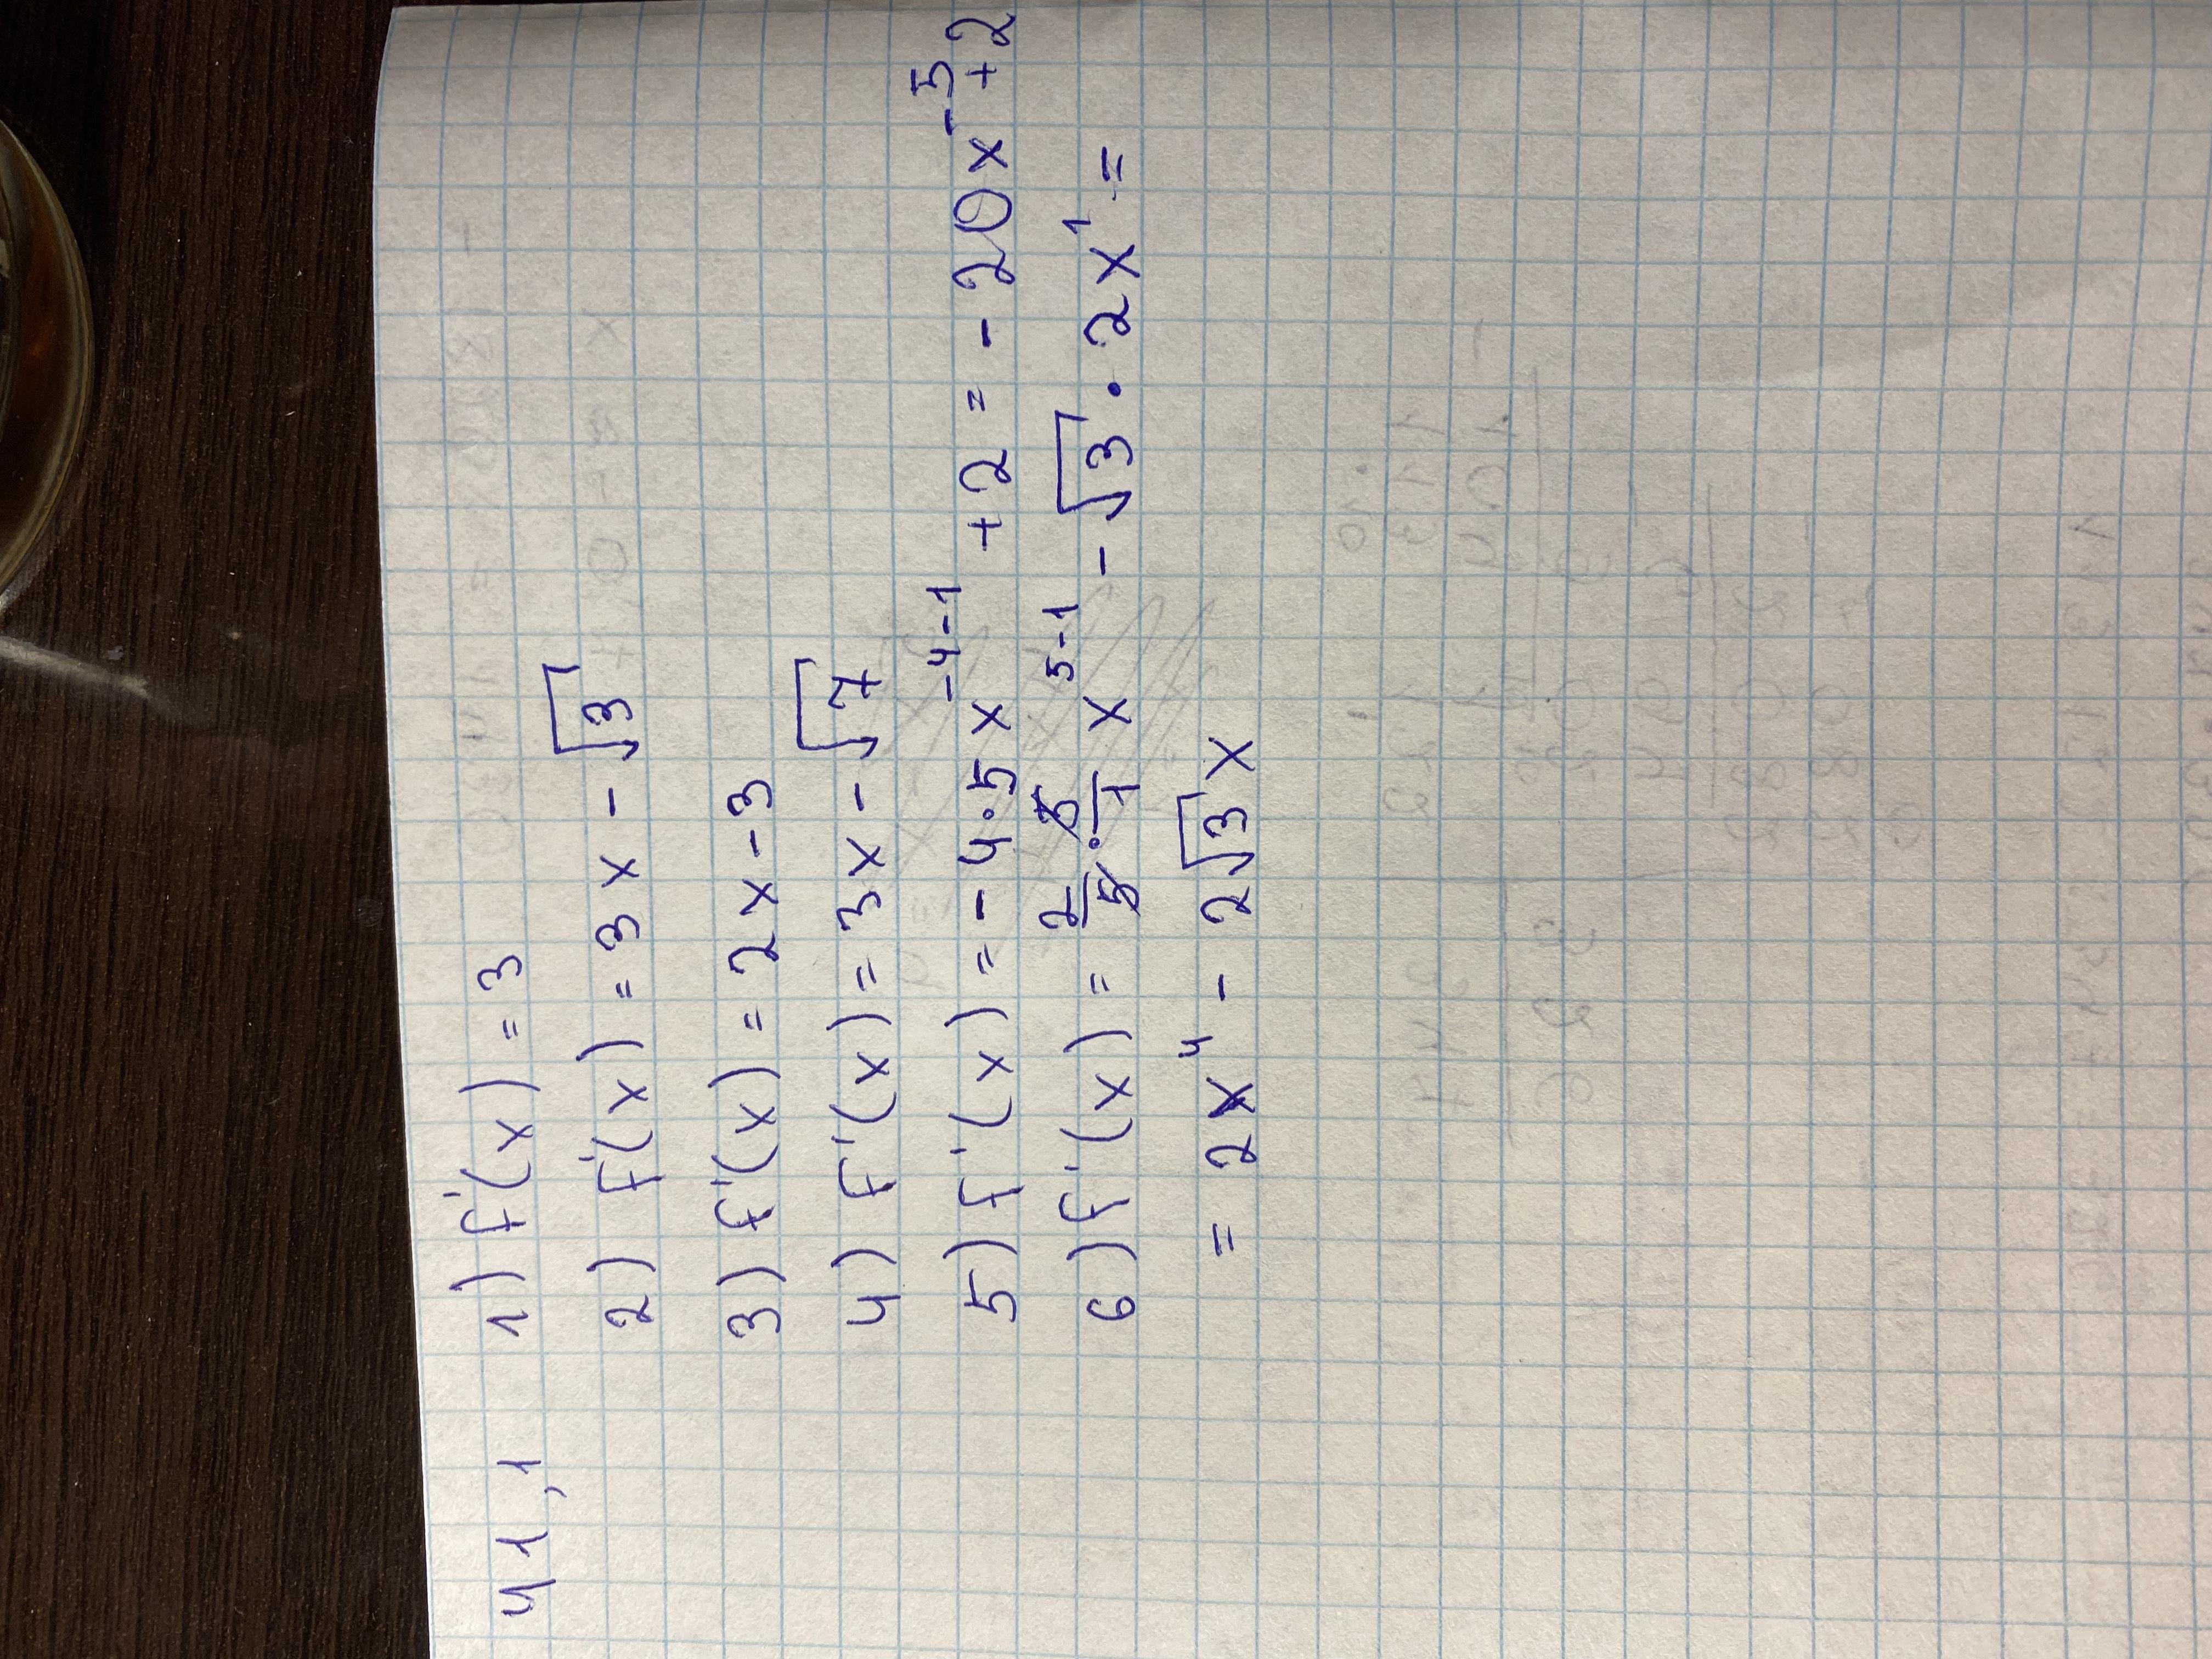 41,1 1) f'(x) = 3
2) f'(x) = 3x - √3
3) f'(x) = 2x - 3
4) f'(x) = 3x - √7
5) f'(x) = -4·5x^{-4-1} + 2 = -20x^{-5} + 2
6) f'(x) = 2/5 · 5/1 x^{5-1} - √3 · 2x^1 =
= 2x^4 - 2√3x